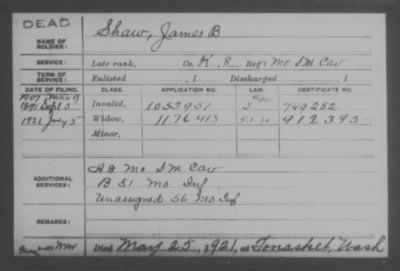 DEAD
NAME OF SOLDIER: Shaw, James B
SERVICE: Late rank, Co. K, 8 Reg't Mo S M Cav
TERM OF SERVICE: Enlisted , 1 Discharged , 1
DATE OF FILING. CLASS. APPLICATION NUMBER. LAW. CERTIFICATE NO.
1891 Sept 5 Invalid, 1053951 749282
1921 Widow, 1176413 912395
Minor,
ADDITIONAL SERVICES: A 8 Mo S M Cav
B 51 Mo Inf
Unassigned 56 Mo Inf
REMARKS:
Died May 25, 1921, at Tonasket, Wash